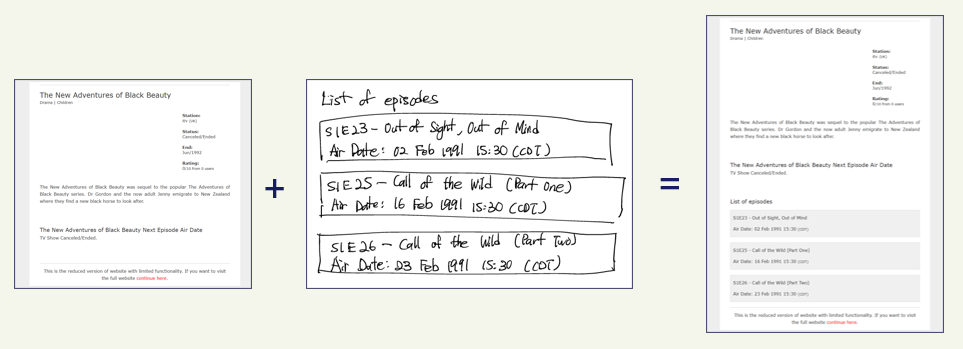 The New Adventures of Black Beauty
Drama | Children
Station:
Itv (UK)
Status:
Canceled/Ended
End:
Jun/1992
Rating:
0/10 from 0 users
The New Adventures of Black Beauty was sequel to the popular The Adventures of
Black Beauty series. Dr Gordon and the now adult Jenny emigrate to New Zealand
where they find a new black horse to look after.
The New Adventures of Black Beauty Next Episode Air Date
TV Show Canceled/Ended.
This is the reduced version of website with limited functionality. If you want to visit
the full website continue here.
+
List of episodes
S1E23 - Out of Sight, Out of Mind
Air Date: 02 Feb 1991 15:30 (CDT)
S1E25 - Call of the Wild (Part One)
Air Date: 16 Feb 1991 15:30 (CDT)
S1E26 - Call of the Wild (Part Two)
Air Date: 23 Feb 1991 15:30 (CDT)
=
The New Adventures of Black Beauty
Drama | Children
Station:
Itv (UK)
Status:
Canceled/Ended
End:
Jun/1992
Rating:
0/10 from 0 users
The New Adventures of Black Beauty was sequel to the popular The Adventures of
Black Beauty series. Dr Gordon and the now adult Jenny emigrate to New Zealand
where they find a new black horse to look after.
The New Adventures of Black Beauty Next Episode Air Date
TV Show Canceled/Ended.
List of episodes
S1E23 - Out of Sight, Out of Mind
Air Date: 02 Feb 1991 15:30 (GMT)
S1E25 - Call of the Wild (Part One)
Air Date: 16 Feb 1991 15:30 (GMT)
S1E26 - Call of the Wild (Part Two)
Air Date: 23 Feb 1991 15:30 (GMT)
This is the reduced version of website with limited functionality. If you want to visit
the full website continue here.